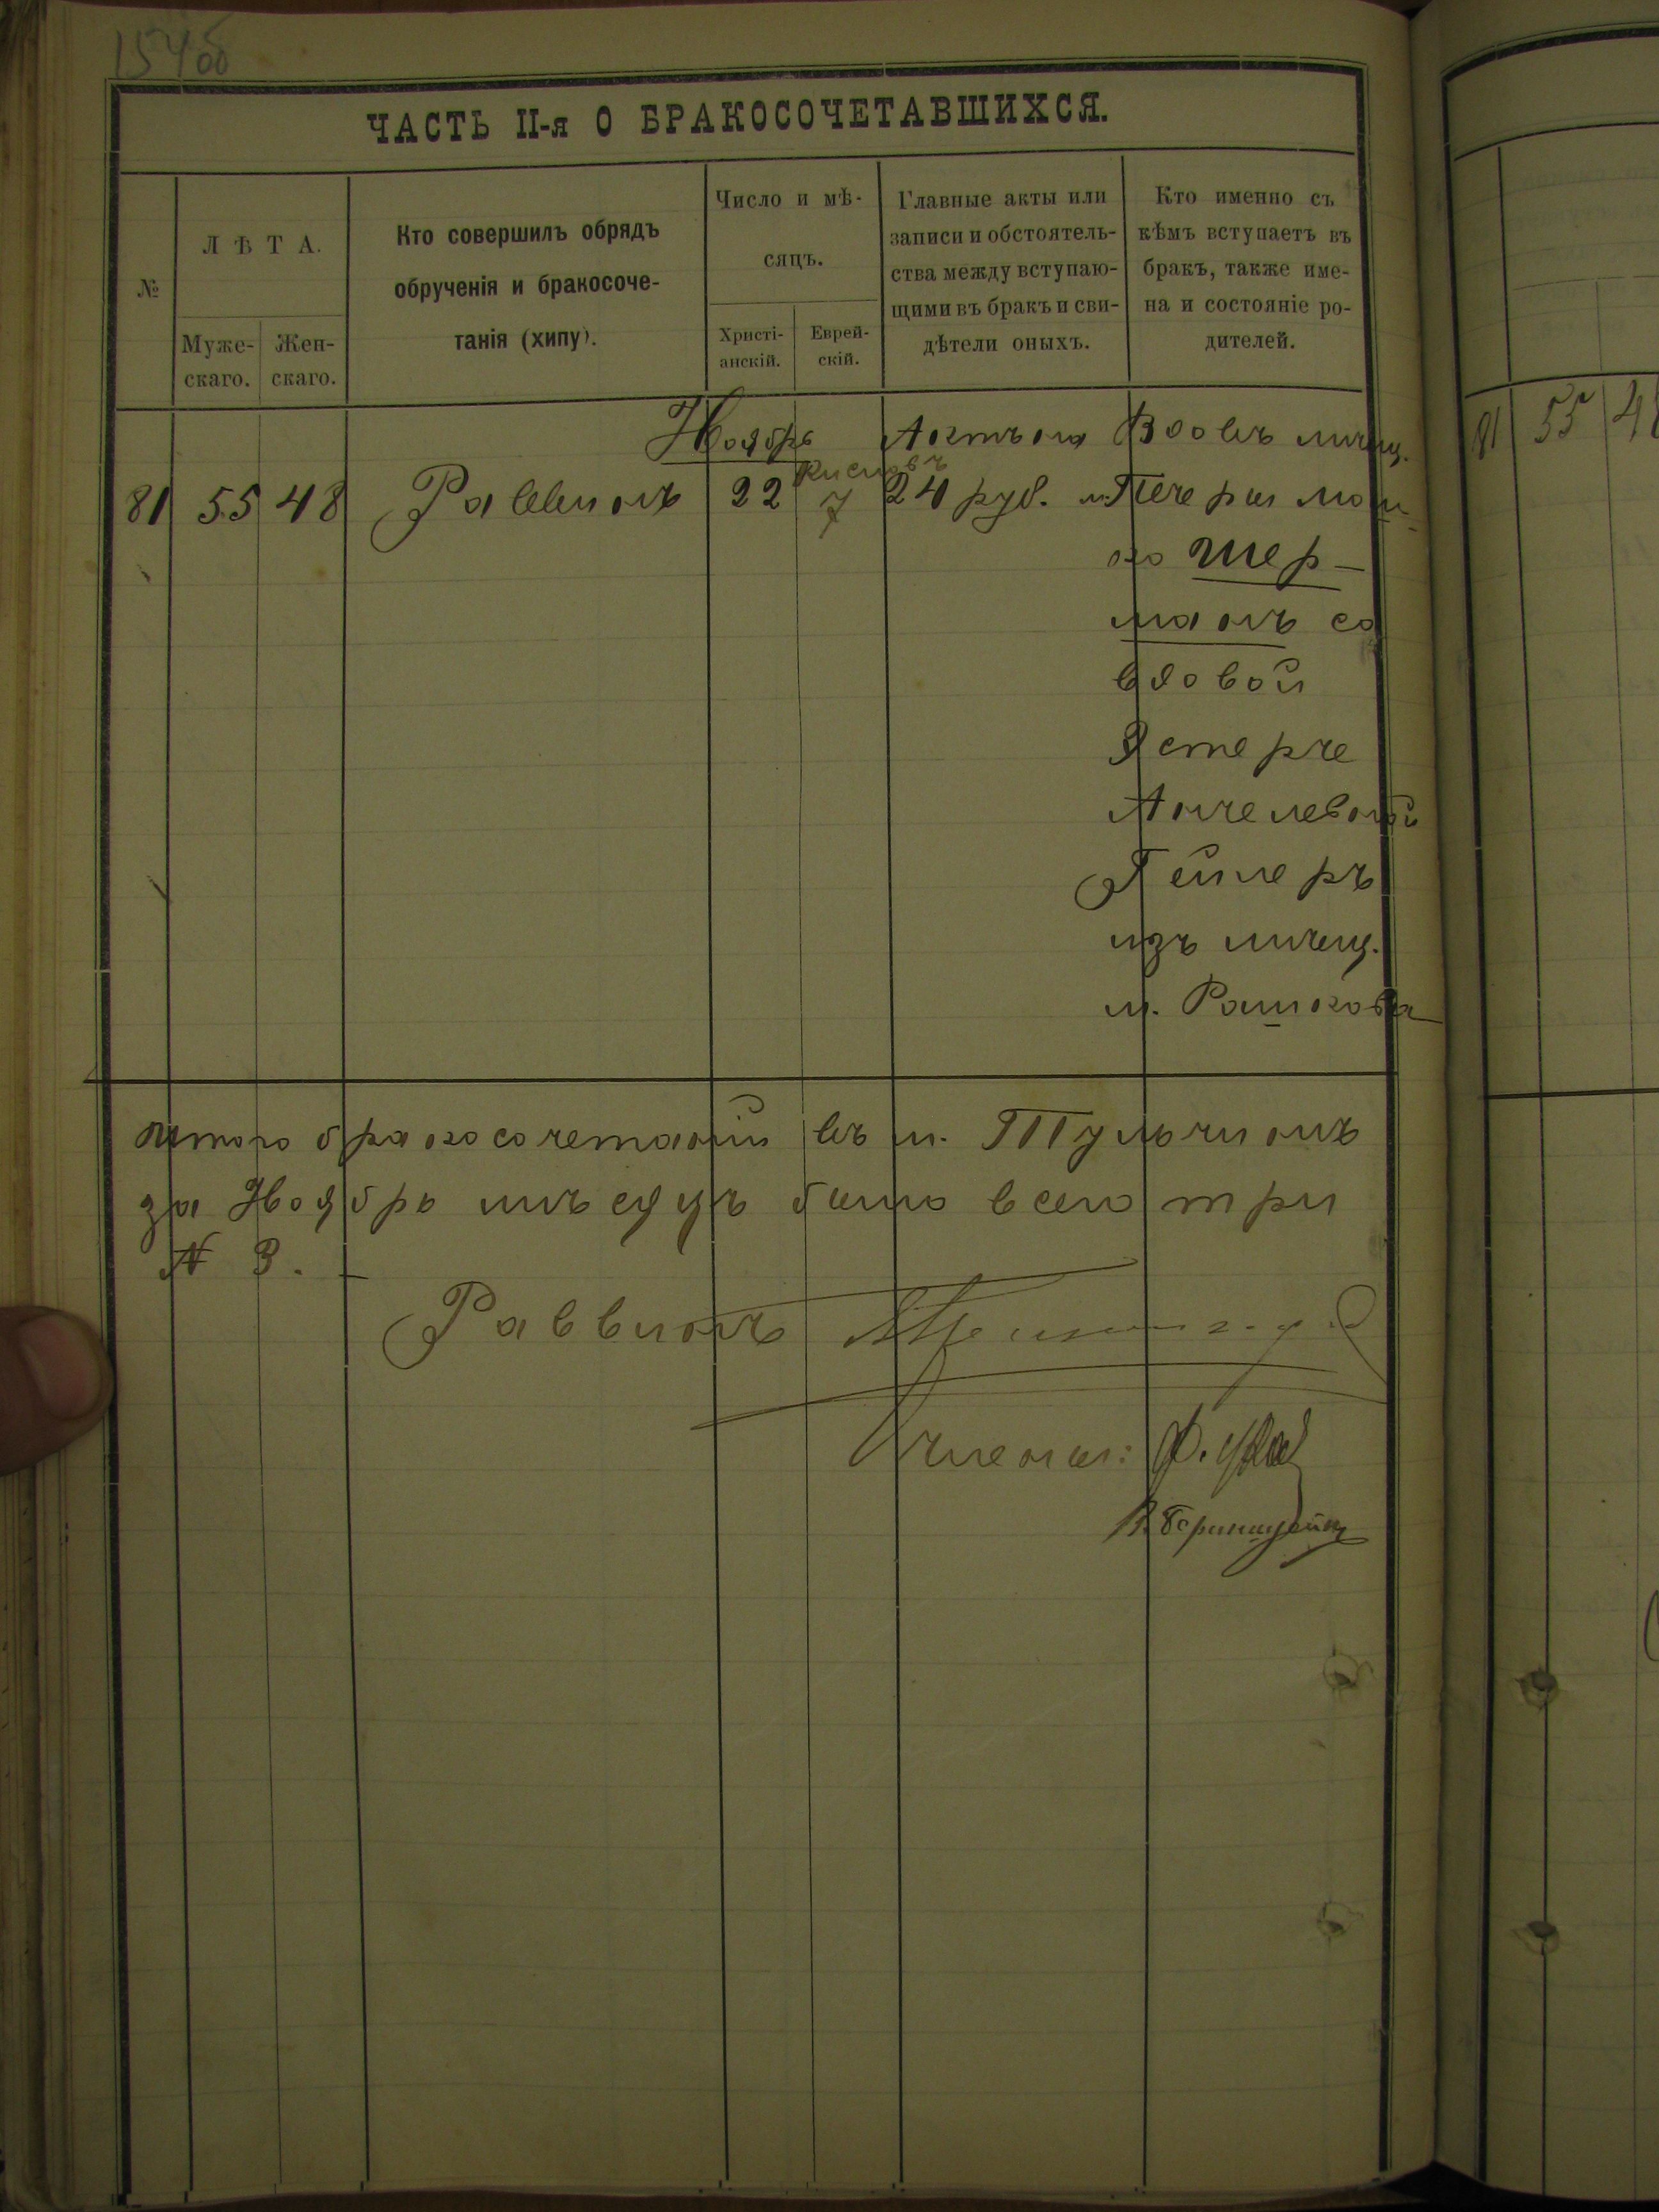 ЧАСТЬ II-я О БРАКОСОЧЕТАВШИХСЯ.
№
ЛѢТА.
Муже-
скаго.
Жен-
скаго.
Кто совершилъ обрядъ
обрученія и бракосоче-
танія (хипу).
Число и мѣ-
сяцъ.
Христі-
анскій.
Еврей-
скій.
Главные акты или
записи и обстоятель-
ства между вступаю-
щими въ бракъ и сви-
дѣтели оныхъ.
Кто именно съ
кѣмъ вступаетъ въ
бракъ, также име-
на и состояніе ро-
дителей.
Ноябрь Кислевъ Актъ на Вдовъ мѣщ.
81 55 48 Раввинъ 22 7 24 руб. м. Печеры
Шер-
манъ со
вдовой
Эстерѣ
Анчелевой
Гейлеръ
изъ мѣщ.
м. Рашкова
Итого бракосочетаній въ м. Тульчинѣ
за Ноябрь мѣсяцъ было всего три
№ 3.
Раввинъ
Члены:
81 55